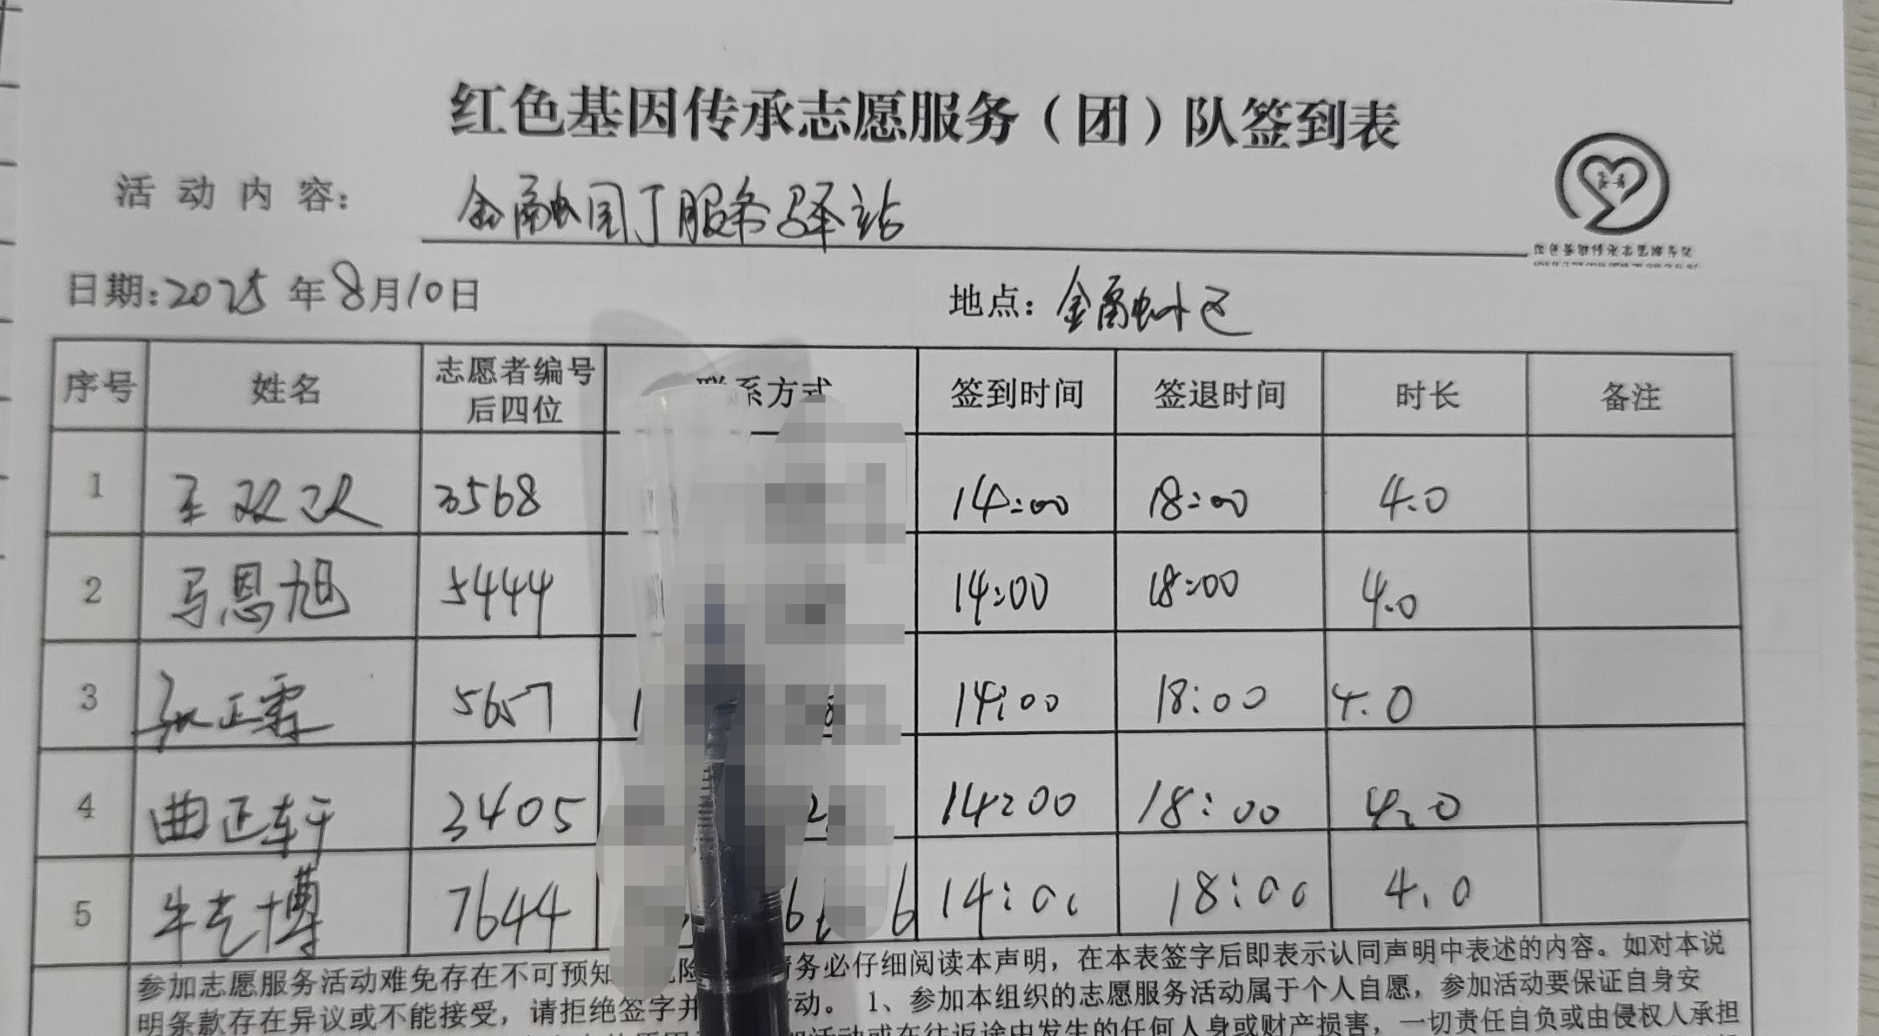 红色基因传承志愿服务（团）队签到表
活动内容： 金融园丁服务驿站
日期：2025年8月10日 地点：金融小区
序号 姓名 志愿者编号后四位 联系方式 签到时间 签退时间 时长 备注
1 王双双 3568 14:00 18:00 4.0
2 马恩旭 5444 14:00 18:00 4.0
3 张正霖 5657 14:00 18:00 4.0
4 曲正轩 3405 14:00 18:00 4.0
5 牛艺博 7644 14:00 18:00 4.0
参加志愿服务活动难免存在不可预知 险 请务必仔细阅读本声明，在本表签字后即表示认同声明中表述的内容。如对本说
明条款存在异议或不能接受，请拒绝签字并 活动。1、参加本组织的志愿服务活动属于个人自愿，参加活动要保证自身安
活动或在往返途中发生的任何人身或财产损害，一切责任自负或由侵权人承担